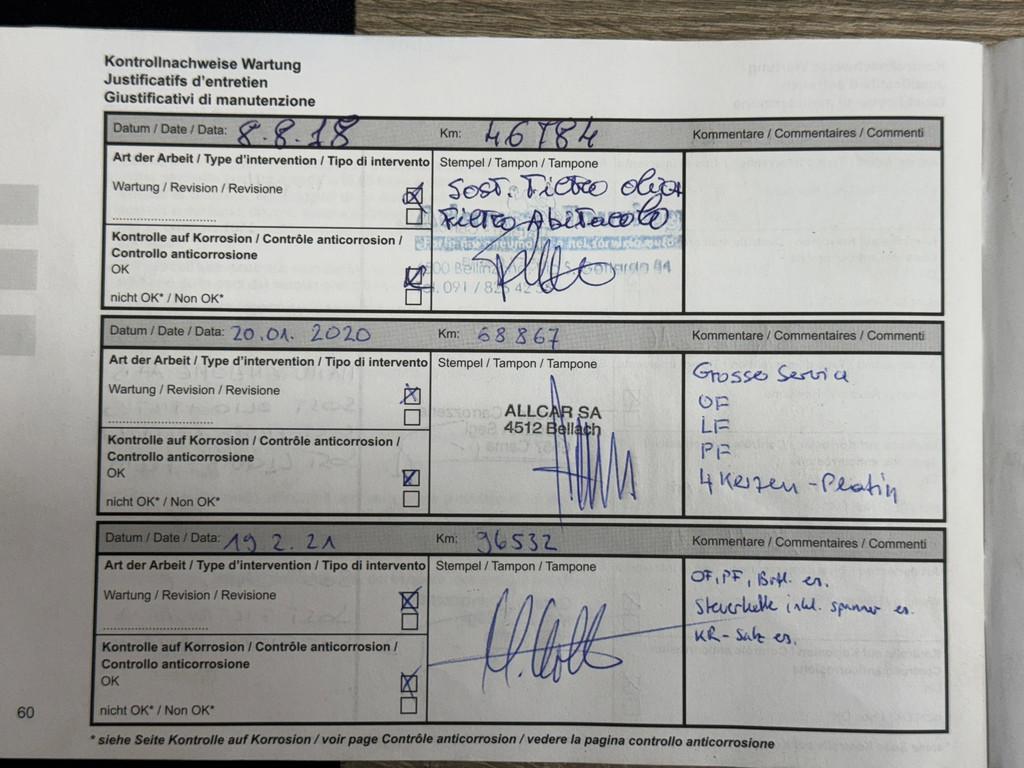 Kontrollnachweise Wartung
Justificatifs d'entretien
Giustificativi di manutenzione
Datum / Date / Data: 8.8.18 Km: 46784 Kommentare / Commentaires / Commenti
Art der Arbeit / Type d'intervention / Tipo di intervento Stempel / Tampon / Tampone
Wartung / Revision / Revisione
Sost. Filtro olio
Filtro Abitacolo
Kontrolle auf Korrosion / Contrôle anticorrosion /
Controllo anticorrosione
OK
nicht OK* / Non OK*
Datum / Date / Data: 20.01. 2020 Km: 68867 Kommentare / Commentaires / Commenti
Art der Arbeit / Type d'intervention / Tipo di intervento Stempel / Tampon / Tampone
Wartung / Revision / Revisione
ALLCAR SA
4512 Bellach
Kontrolle auf Korrosion / Contrôle anticorrosion /
Controllo anticorrosione
OK
nicht OK* / Non OK*
Grosse Service
OF
LF
PF
4 Kerzen - Platin
Datum / Date / Data: 19 2. 21 Km: 96532 Kommentare / Commentaires / Commenti
Art der Arbeit / Type d'intervention / Tipo di intervento Stempel / Tampon / Tampone
Wartung / Revision / Revisione
Kontrolle auf Korrosion / Contrôle anticorrosion /
Controllo anticorrosione
OK
nicht OK* / Non OK*
OF, PF, er.
Steuerkette inkl. spanner er.
KR-Satz er.
60
* siehe Seite Kontrolle auf Korrosion / voir page Contrôle anticorrosion / vedere la pagina controllo anticorrosione